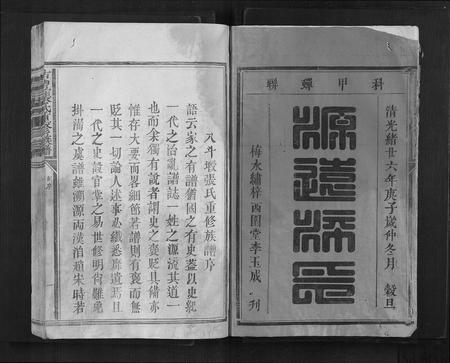 科甲蟬聯
清光緒廿六年庚子歲仲冬月 穀旦
源遠流長
梅水繡梓西園堂李玉成 刊
八斗墩張氏重修族譜序
語云家之有譜猶國之有史蓋以史紀
一代之治亂譜誌一姓之源流其道一
也而余獨有說者謂史之褒貶具備亦
惟存大要而畧細節若譜則有褒而無
貶其一切論人述事必纖悉靡遺焉且
一代之史設官掌之易世修明尚難免
掛漏之虞譜雖溯源兩漢沿趙宋時若